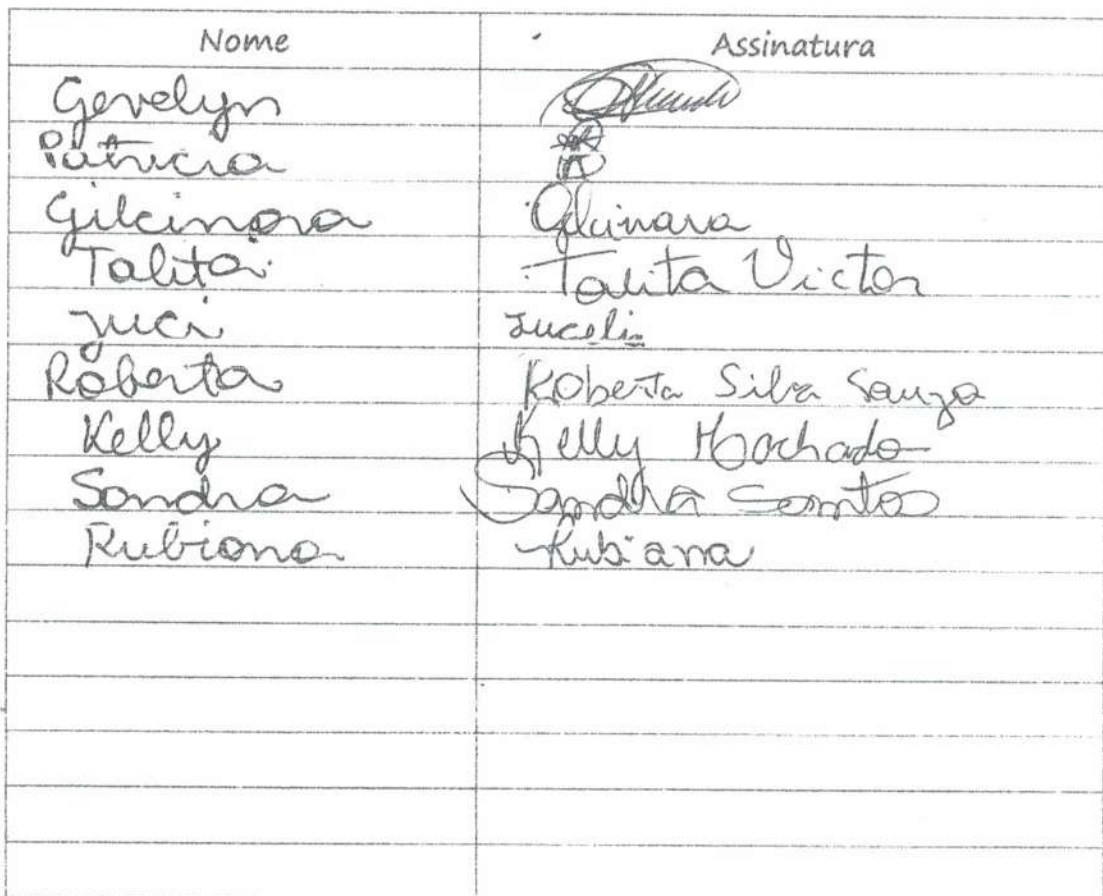 Nome Assinatura
Gevelyn
Patricia
Gilcinara Gilcinara
Talita Talita Victor
Juci Juceli
Roberta Roberta Silva Souza
Kelly Kelly Machado
Sandra Sandra Santos
Rubiana Rubiana